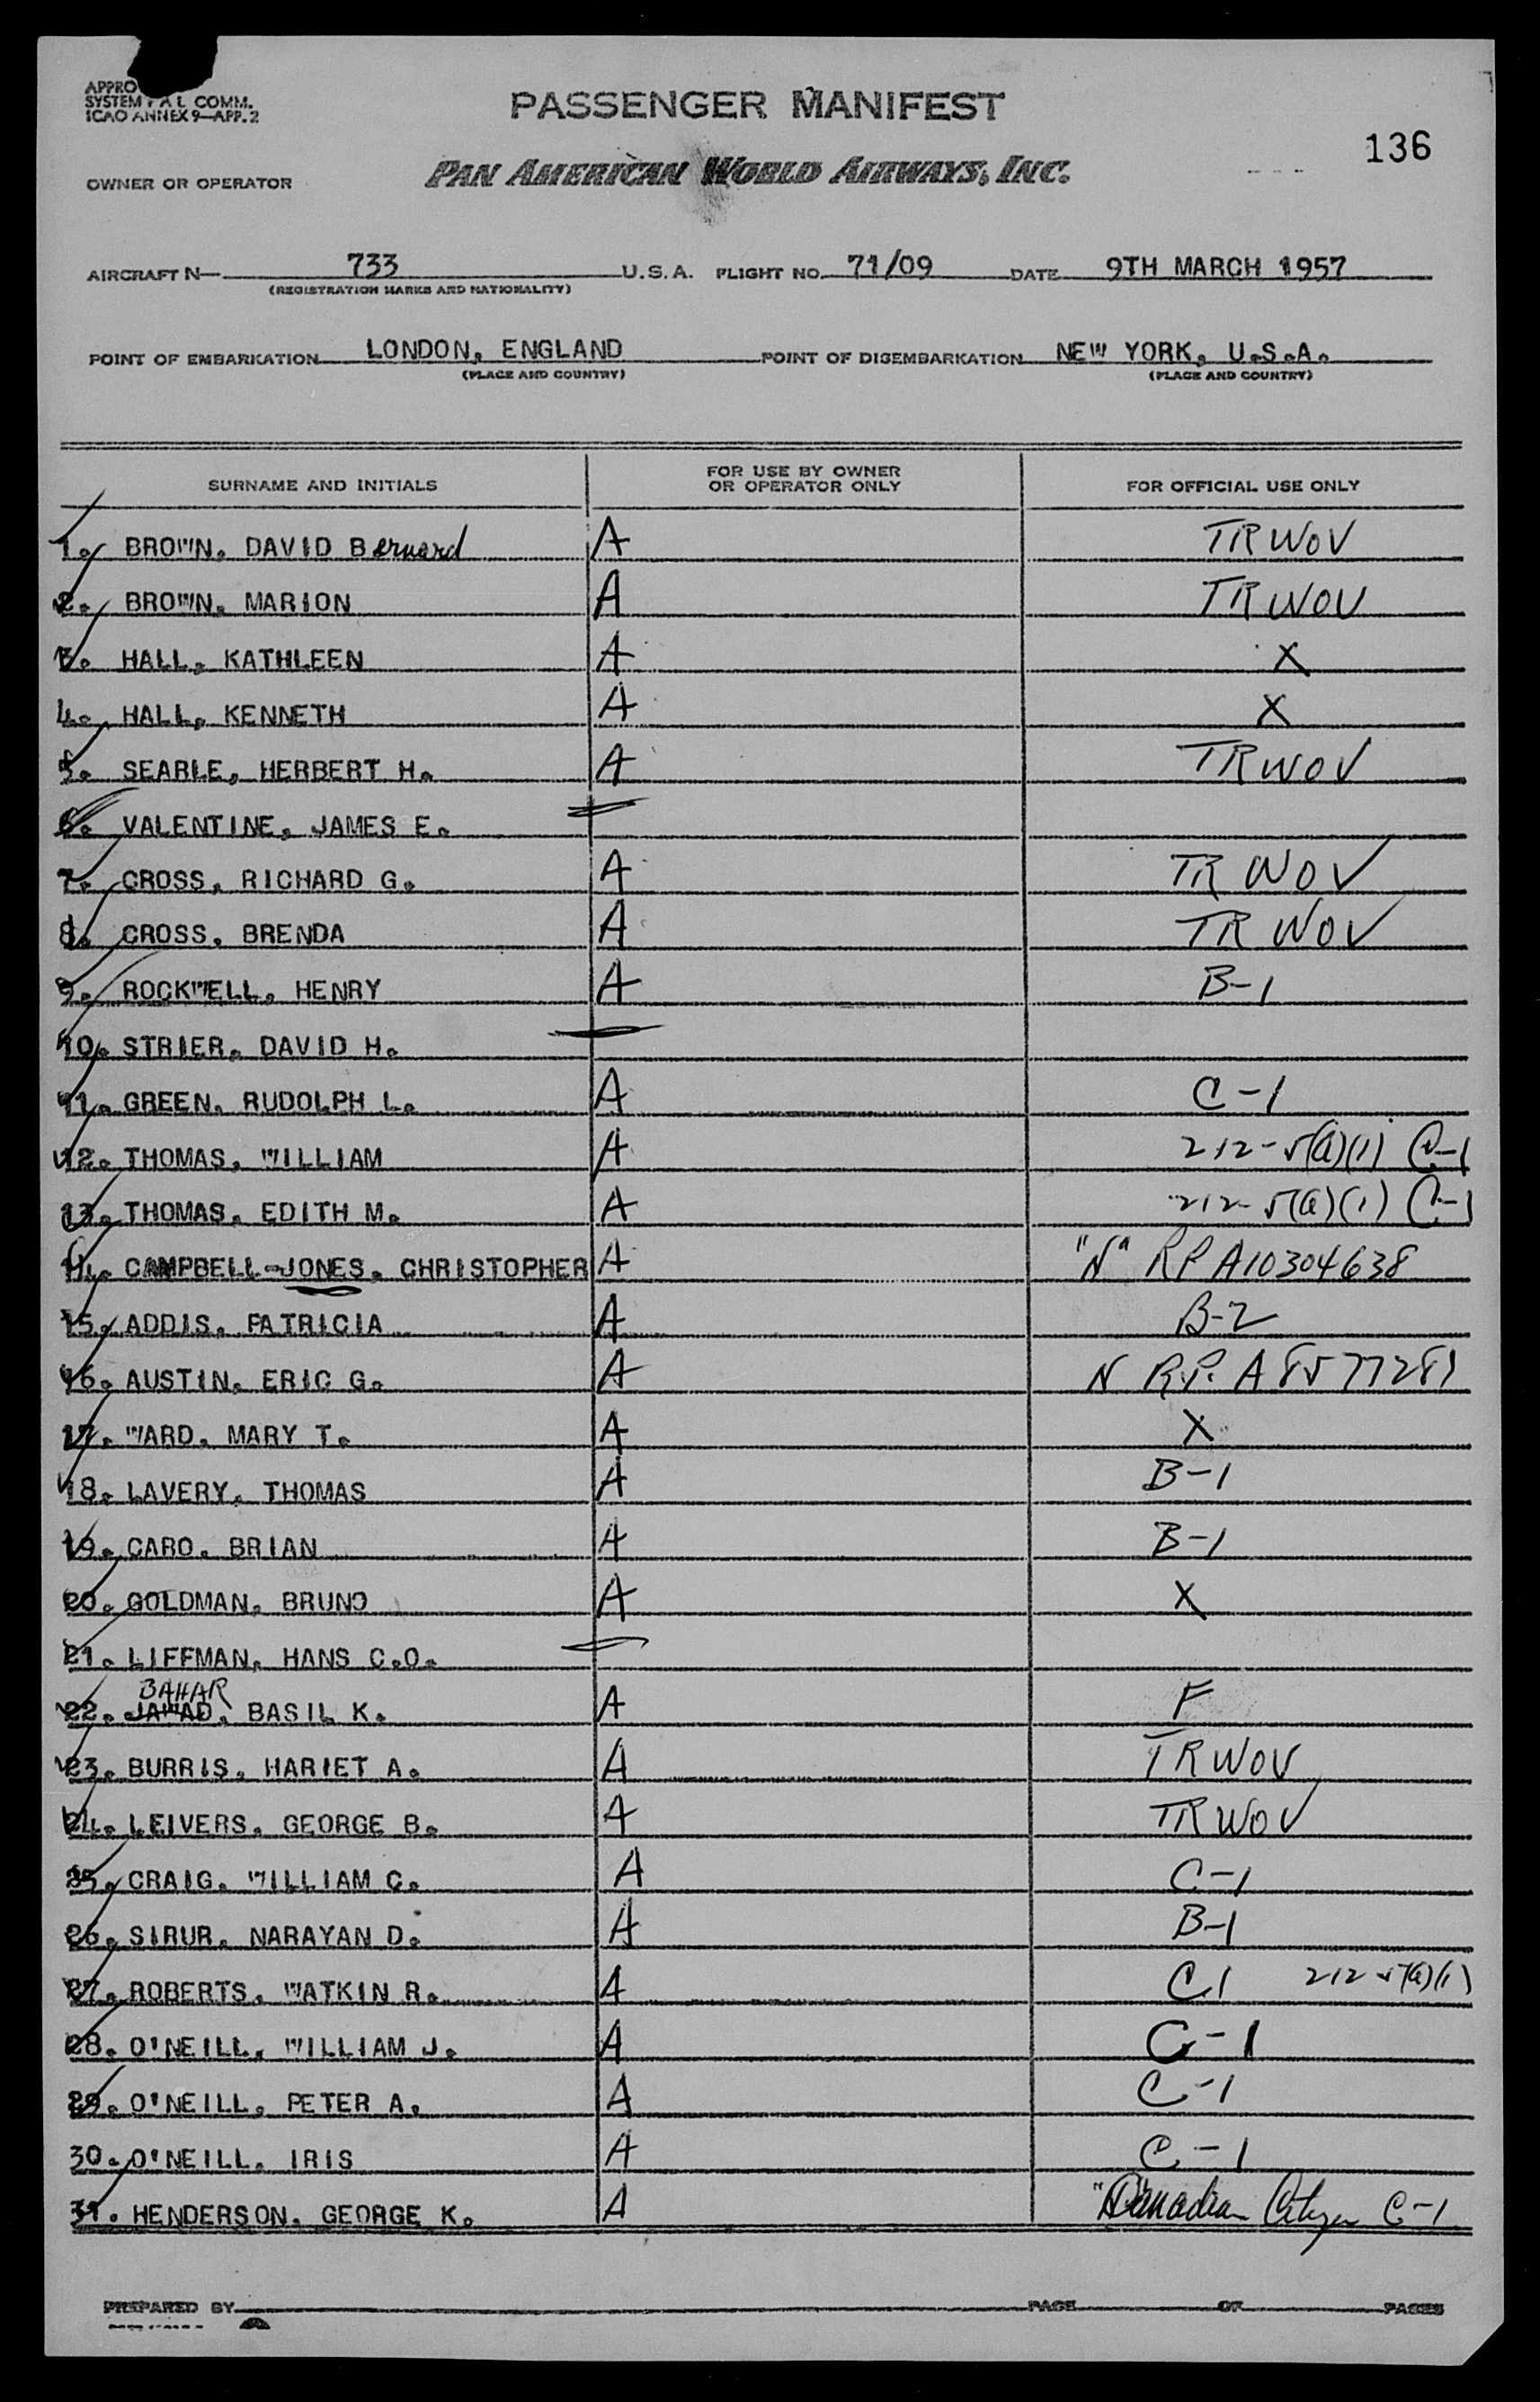 SYSTEM COMM.
ICAO ANNEX 9—APP. 2
PASSENGER MANIFEST
136
OWNER OR OPERATOR PAN AMERICAN WORLD AIRWAYS, INC.
AIRCRAFT N— 733 U.S.A. FLIGHT NO. 71/09 DATE 9TH MARCH 1957
(REGISTRATION MARKS AND NATIONALITY)
POINT OF EMBARKATION LONDON, ENGLAND POINT OF DISEMBARKATION NEW YORK, U.S.A.
(PLACE AND COUNTRY) (PLACE AND COUNTRY)
SURNAME AND INITIALS FOR USE BY OWNER OR OPERATOR ONLY FOR OFFICIAL USE ONLY
1. BROWN. DAVID Bernard A TRWOV
2. BROWN. MARION A TRWOV
3. HALL, KATHLEEN A X
4. HALL, KENNETH A X
5. SEARLE, HERBERT H. A TRWOV
6. VALENTINE, JAMES E.
7. CROSS, RICHARD G. A TR WOV
8. CROSS, BRENDA A TR WOV
9. ROCKWELL, HENRY A B-1
10. STRIER, DAVID H.
11. GREEN, RUDOLPH L. A C-1
12. THOMAS, WILLIAM A 212-5(a)(1) C-1
13. THOMAS, EDITH M. A 212-5(a)(1) C-1
14. CAMPBELL-JONES, CHRISTOPHER A "N" RP A10304638
15. ADDIS, PATRICIA A B-2
16. AUSTIN, ERIC G. A N R.P. A8577281
17. WARD, MARY T. A X
18. LAVERY, THOMAS A B-1
19. CARO. BRIAN A B-1
20. GOLDMAN, BRUNO A X
21. LIFFMAN, HANS C.O.
BAHAR
22. JAWAD, BASIL K. A F
23. BURRIS, HARIET A. A TRWOV
24. LEIVERS, GEORGE B. A TRWOV
25. CRAIG, WILLIAM C. A C-1
26. SIRUR, NARAYAN D. A B-1
27. ROBERTS, WATKIN R. A C1 212-5(a)(1)
28. O'NEILL, WILLIAM J. A C-1
29. O'NEILL, PETER A. A C-1
30. O'NEILL, IRIS A C-1
31. HENDERSON, GEORGE K. A Canadian Citizen C-1
PREPARED BY PAGE OF PAGES